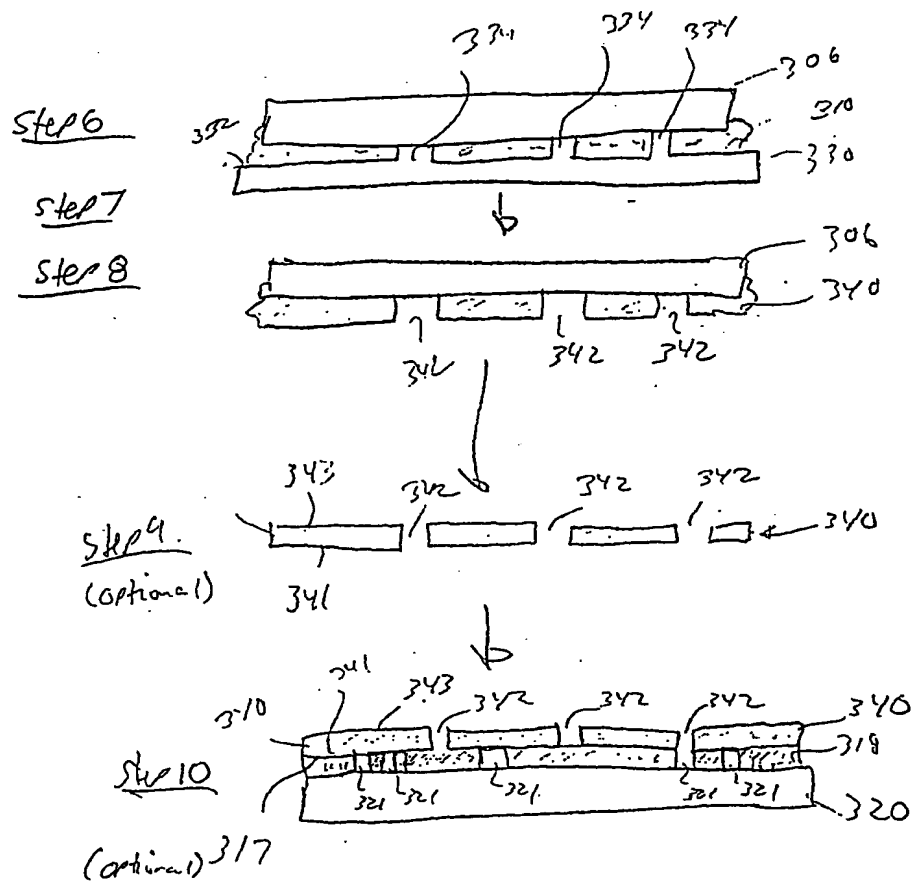 334 334 334 306
Step 6 332 310
330
Step 7
Step 8 306
340
342 342 342
343 342 342 342
Step 9. 340
(optional) 341
341 343 342 342 342 340
310 318
Step 10 321 321 321 321 321
320
(optional) 317